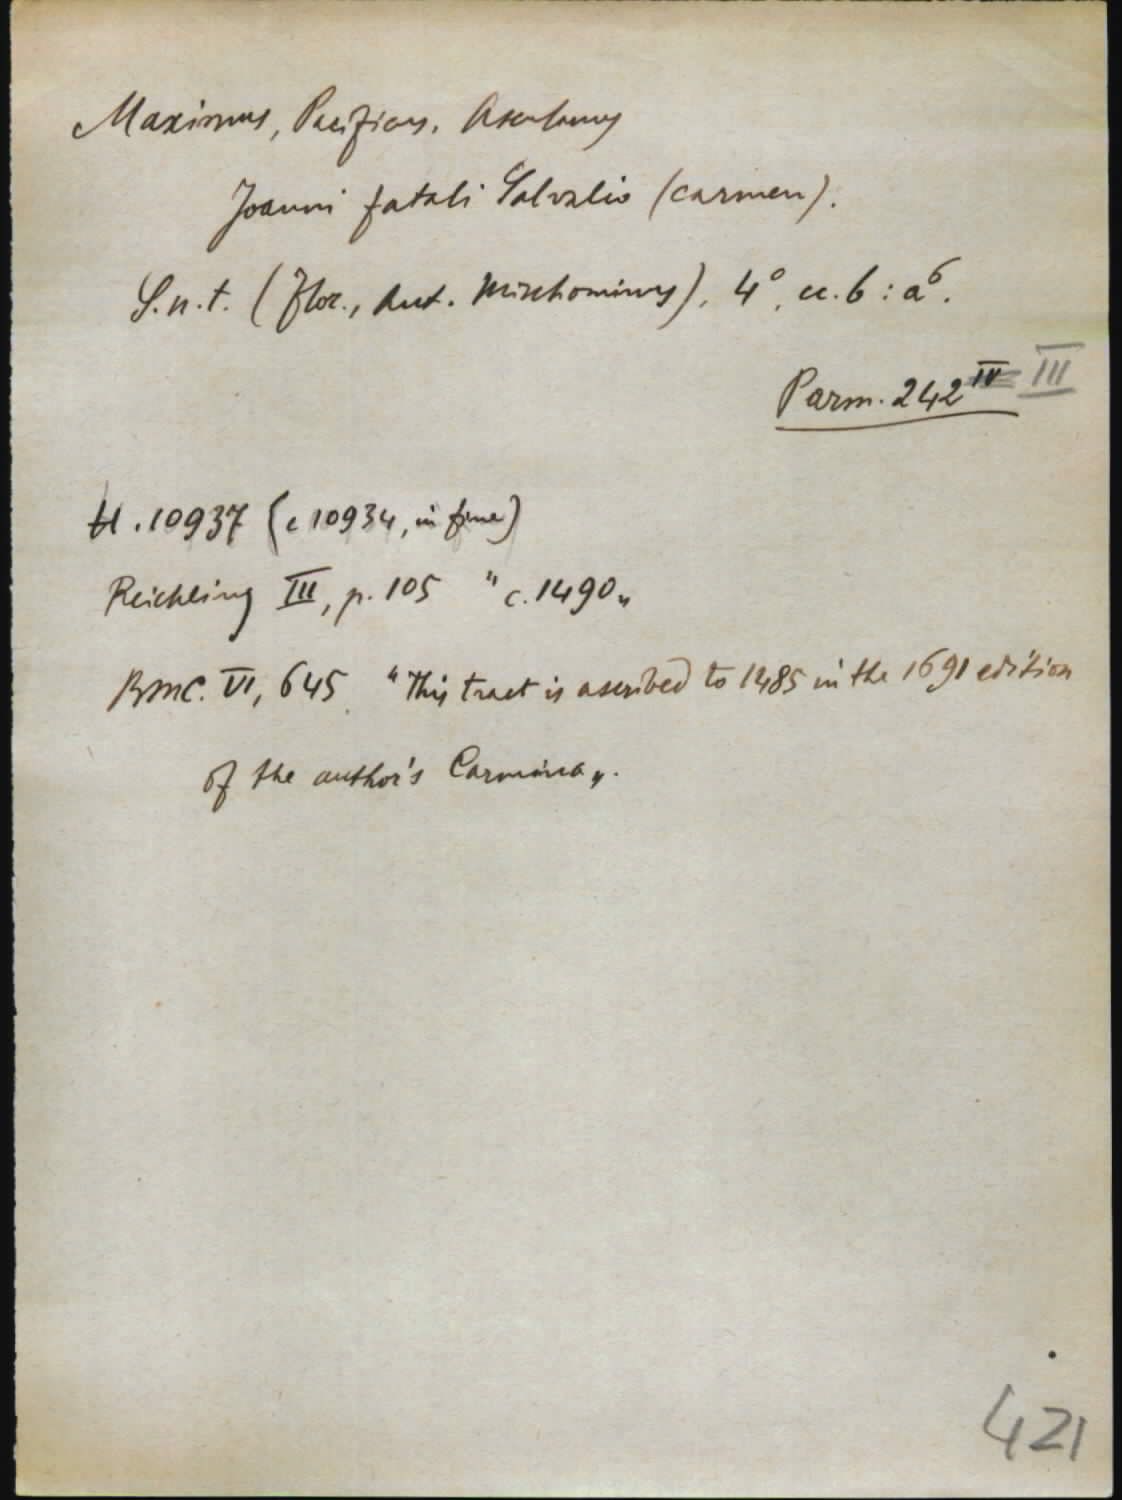 Maximus, Pacificus, Asculanus
Joanni fatali Salvalio (carmen).
S.n.t. (Flor., Ant. Mischominus), 4°, cc. 6 : a⁶.
Parm. 242 IV III
H. 10937 (e 10934, in fine)
Reichling III, p. 105 " c. 1490„
BMC. VI, 645 "This tract is ascribed to 1485 in the 1691 edition
of the author's Carmina„.
421